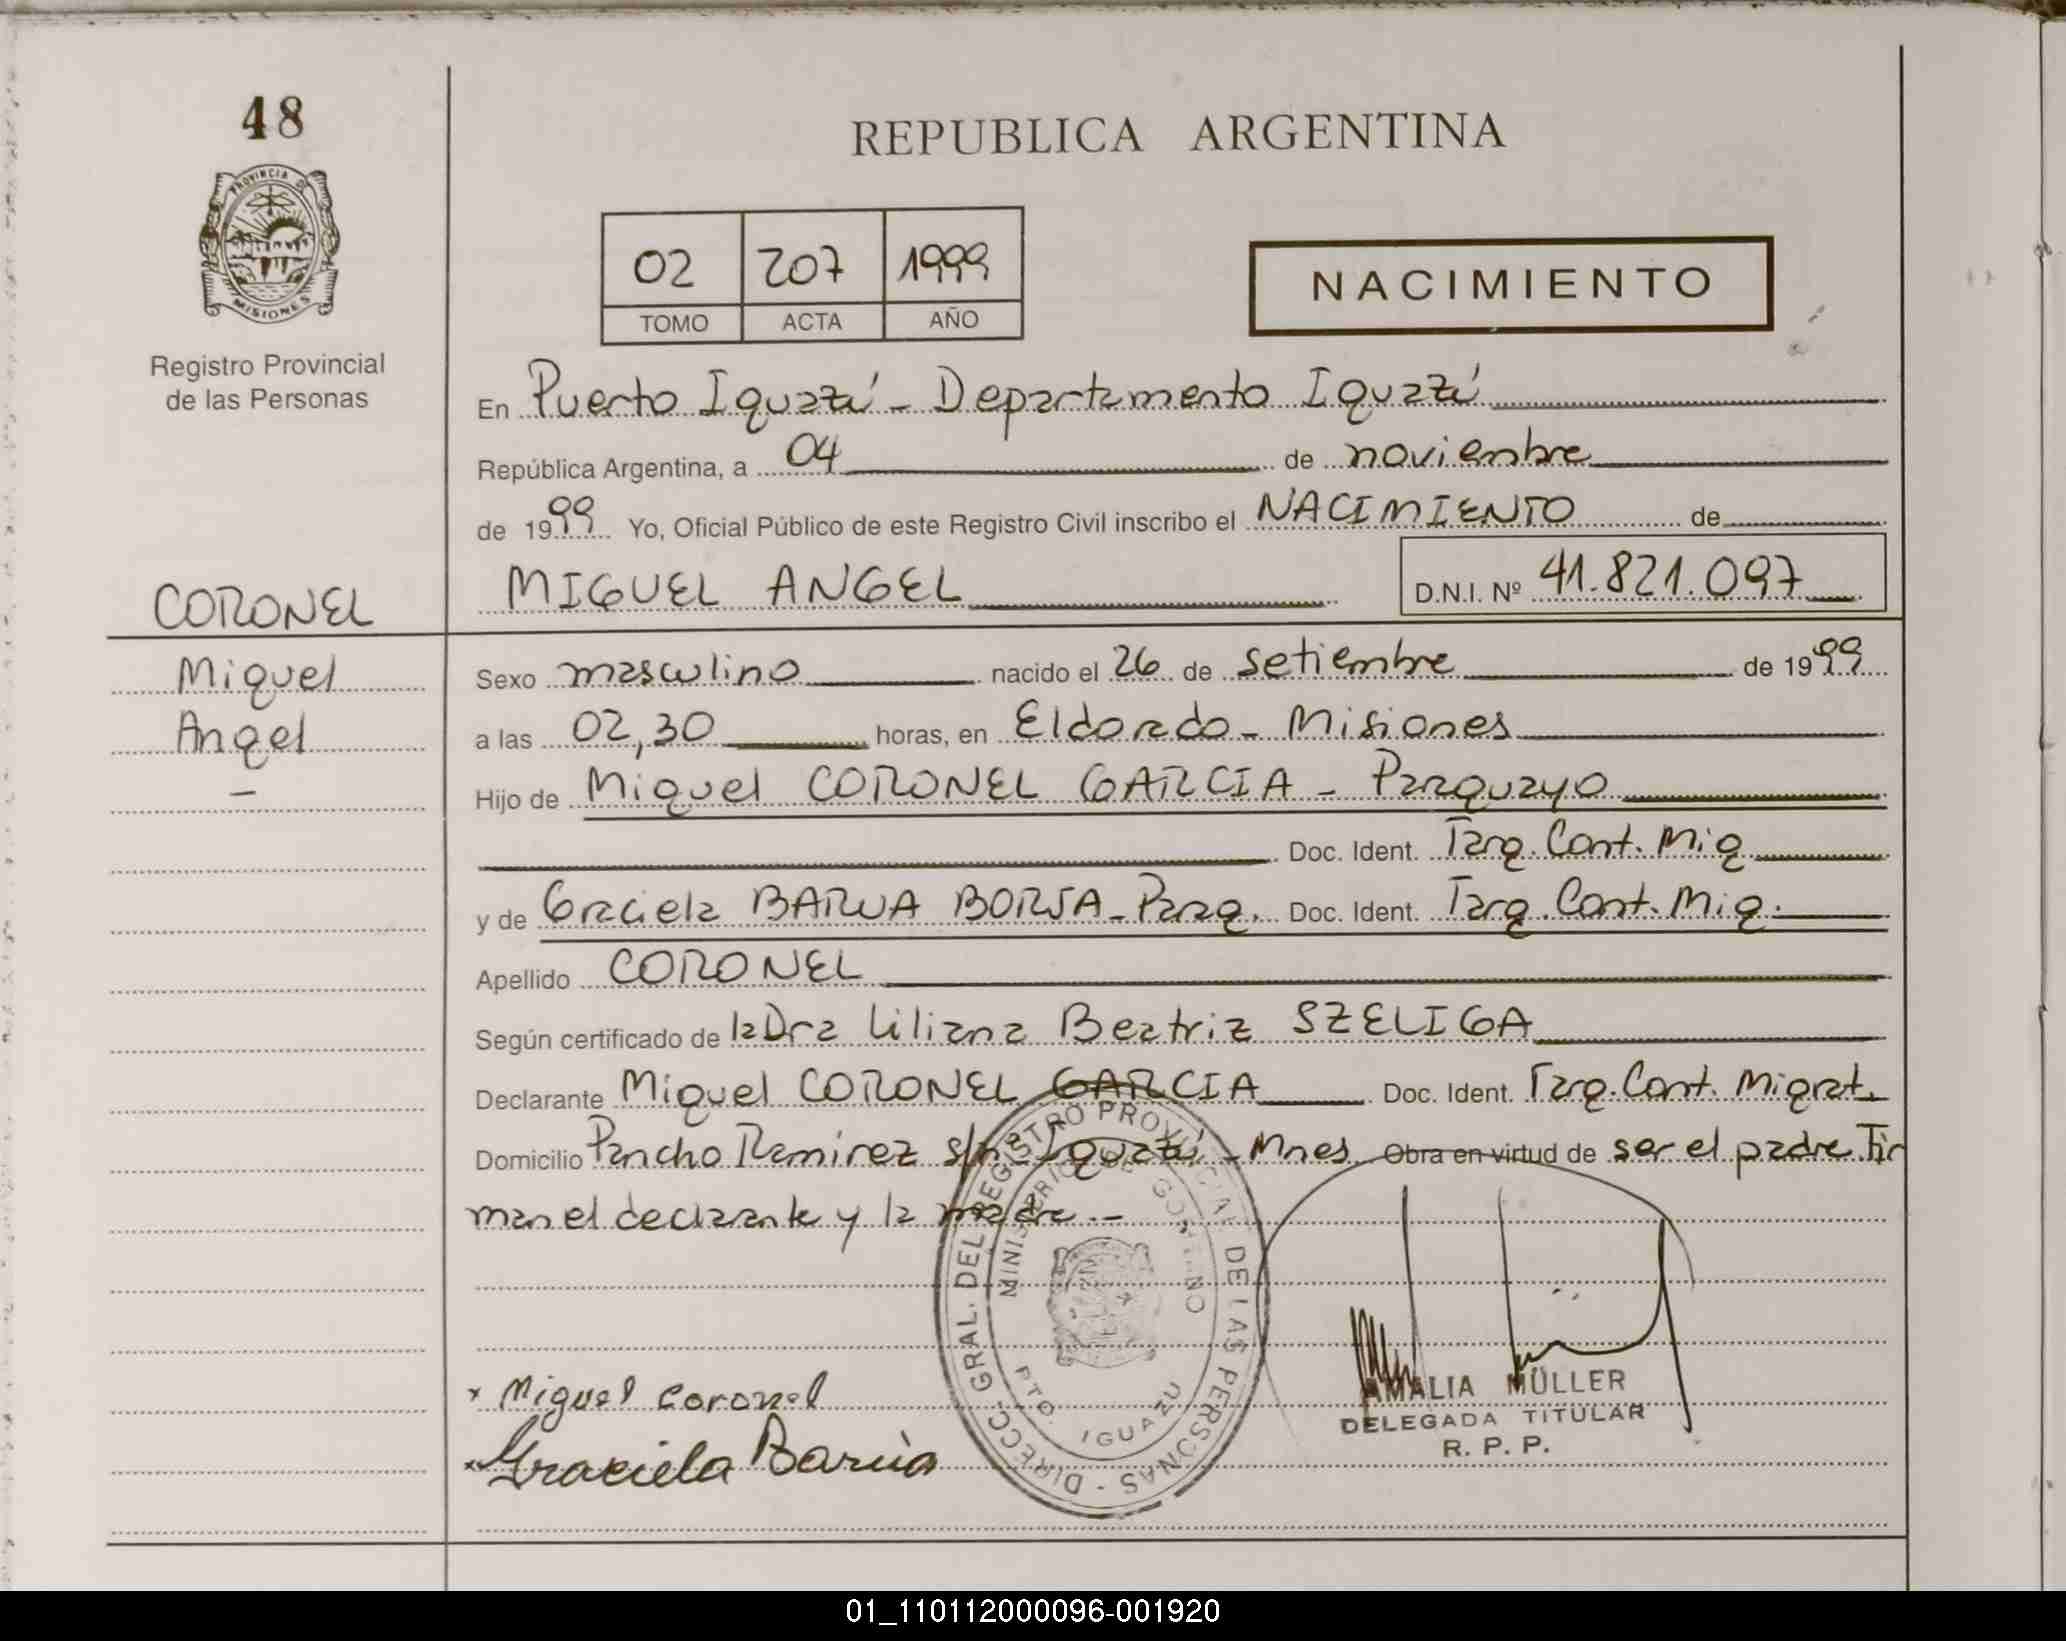 48
REPUBLICA ARGENTINA
PROVINCIA DE
MISIONES
Registro Provincial
de las Personas
02 207 1999
TOMO ACTA AÑO
NACIMIENTO
En Puerto Iguazú - Departamento Iguazú
República Argentina, a 04 de noviembre
de 1999 Yo, Oficial Público de este Registro Civil inscribo el NACIMIENTO de
MIGUEL ANGEL D.N.I. Nº 41.821.097
CORONEL
Miguel
Angel
-
Sexo masculino nacido el 26 de setiembre de 1999
a las 02,30 horas, en Eldorado - Misiones
Hijo de Miguel CORONEL GARCIA - Paraguayo
Doc. Ident. Targ. Cont. Mig
y de Graciela BARUA BORJA - Parag. Doc. Ident. Targ. Cont. Mig.
Apellido CORONEL
Según certificado de la Dra Liliana Beatriz SZELIGA
Declarante Miguel CORONEL GARCIA Doc. Ident. Targ. Cont. Migrat.
Domicilio Pancho Ramirez s/nº Iguazú - Mnes Obra en virtud de ser el padre Fir
man el declarante y la madre.-
DIRECC. GRAL. DEL REGISTRO PROVINCIAL DE LAS PERSONAS
MINISTERIO DE GOBIERNO
PTO. IGUAZU
x Miguel Coronel
x Graciela Barúa
AMALIA MÜLLER
DELEGADA TITULAR
R. P. P.
01_110112000096-001920